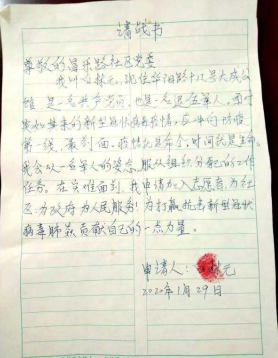 请战书
尊敬的昌乐路社区党委
我叫林元，现住华阳路十八号大成公
雅是一名共产党员，也是一名退伍军人。面对
突如其来的新型冠状病毒疫情，应冲向防疫
第一线，最前面，疫情就是命令，时间就是生命。
我会以一名军人的姿态，服从组织分配的工作
任务。在灾难面前，我申请加入志愿者，为社
区、为政府、为人民服务！为打赢抗击新型冠状
病毒肺炎贡献自己的一点力量。
申请人：林元
2020年1月29日